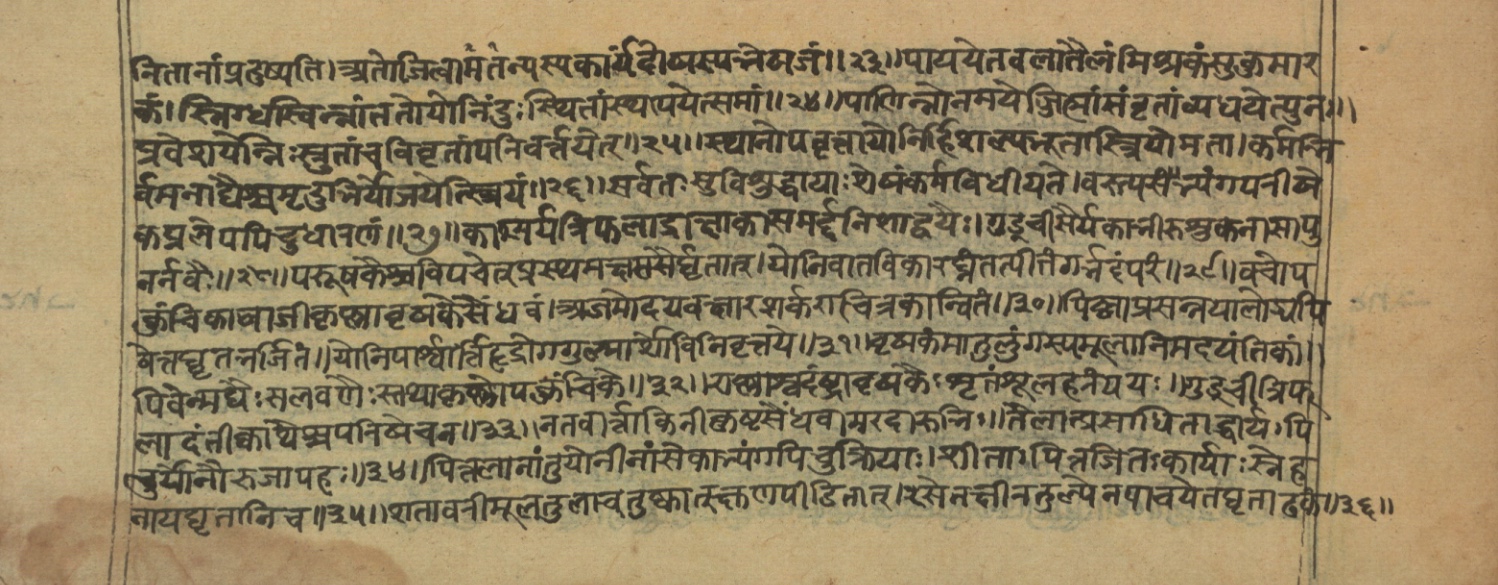 नितानांप्रदुष्यति।अतोजित्वामतंन्यस्यकार्यंदोषस्यनेषजं।।२३।।पाययेतवलातैलंमिश्रकंसुकुमार
कं।स्निग्धस्विन्नांततोयोनिंदुःस्थितांस्थापयेत्समां।।२४।।पाणिनोनमयेज्जिह्मांसंवृतांव्यधयेत्पुनः।।
प्रवेशयेन्निःस्रुतांचविवृतांपनिवर्त्तयेत्।।२५।।स्थानोपवृत्तायोनिर्हिशल्यभूतास्त्रियोमता।कर्मभि
र्वमनाद्यैश्चमृदुभिर्योजयेत्स्त्रियं।।२६।।सर्वतःसुविशुद्धायाःशेषंकर्मविधीयते।वस्त्यभ्यंगपनीषे
कप्रलेपपिचुधारणं।।२७।।काश्मर्यत्रिफलाद्राक्षाकासमर्द्दनिशाद्वयैः।गुडूचीसैर्यकाभीरुशुकनासापु
नर्नवैः।।२८।।परूषकैश्चविपचेत्प्रस्थमक्षसमैर्घृतात्।योनिवातविकारघ्नंतत्पीतंगर्भदंपरं।।२९।।वचोप
कुंचिकाजाजीकृष्णावृषकसैंधवं।अजमोदयवक्षारशर्कराचित्रकान्वितं।।३०।।पिष्ट्वाप्रसन्नयालोड्यपि
वेत्तघृतभर्जितं।।योनिपार्श्वार्त्तिहृद्रोगगुल्मार्शोविनिवृत्तये।।३१।।वृषकंमातुलुंगस्यमूलानिमदयंतिकां।।
पिवेन्मद्यैःसलवणैःस्तथाकृष्णोपकुंचिकै।।३२।।रास्नाश्वदंष्ट्रावृषकैःशृतंशूलहनंपयः।।गुडूचीत्रिफ
लादंतीक्वाथैश्चपनिषेचन।।३३।।नतवार्त्ताकिनीकुष्टसैंधवामरदारुभिः।।तैलात्प्रसाधिताद्धार्यःपि
चुर्योनौरुजापहः।।३४।।पित्तलानांतुयोनीनांसेकाभ्यंगपिचुक्रियाः।शीताःपित्तजितःकार्याःस्नेह
नायघृतानिच।।३५।।शतावरीमूलतुलाचतुष्कात्क्षुण्णपीडितात्।रसेनक्षीरतुल्येनपाचयेतघृताढकं।।३६।।